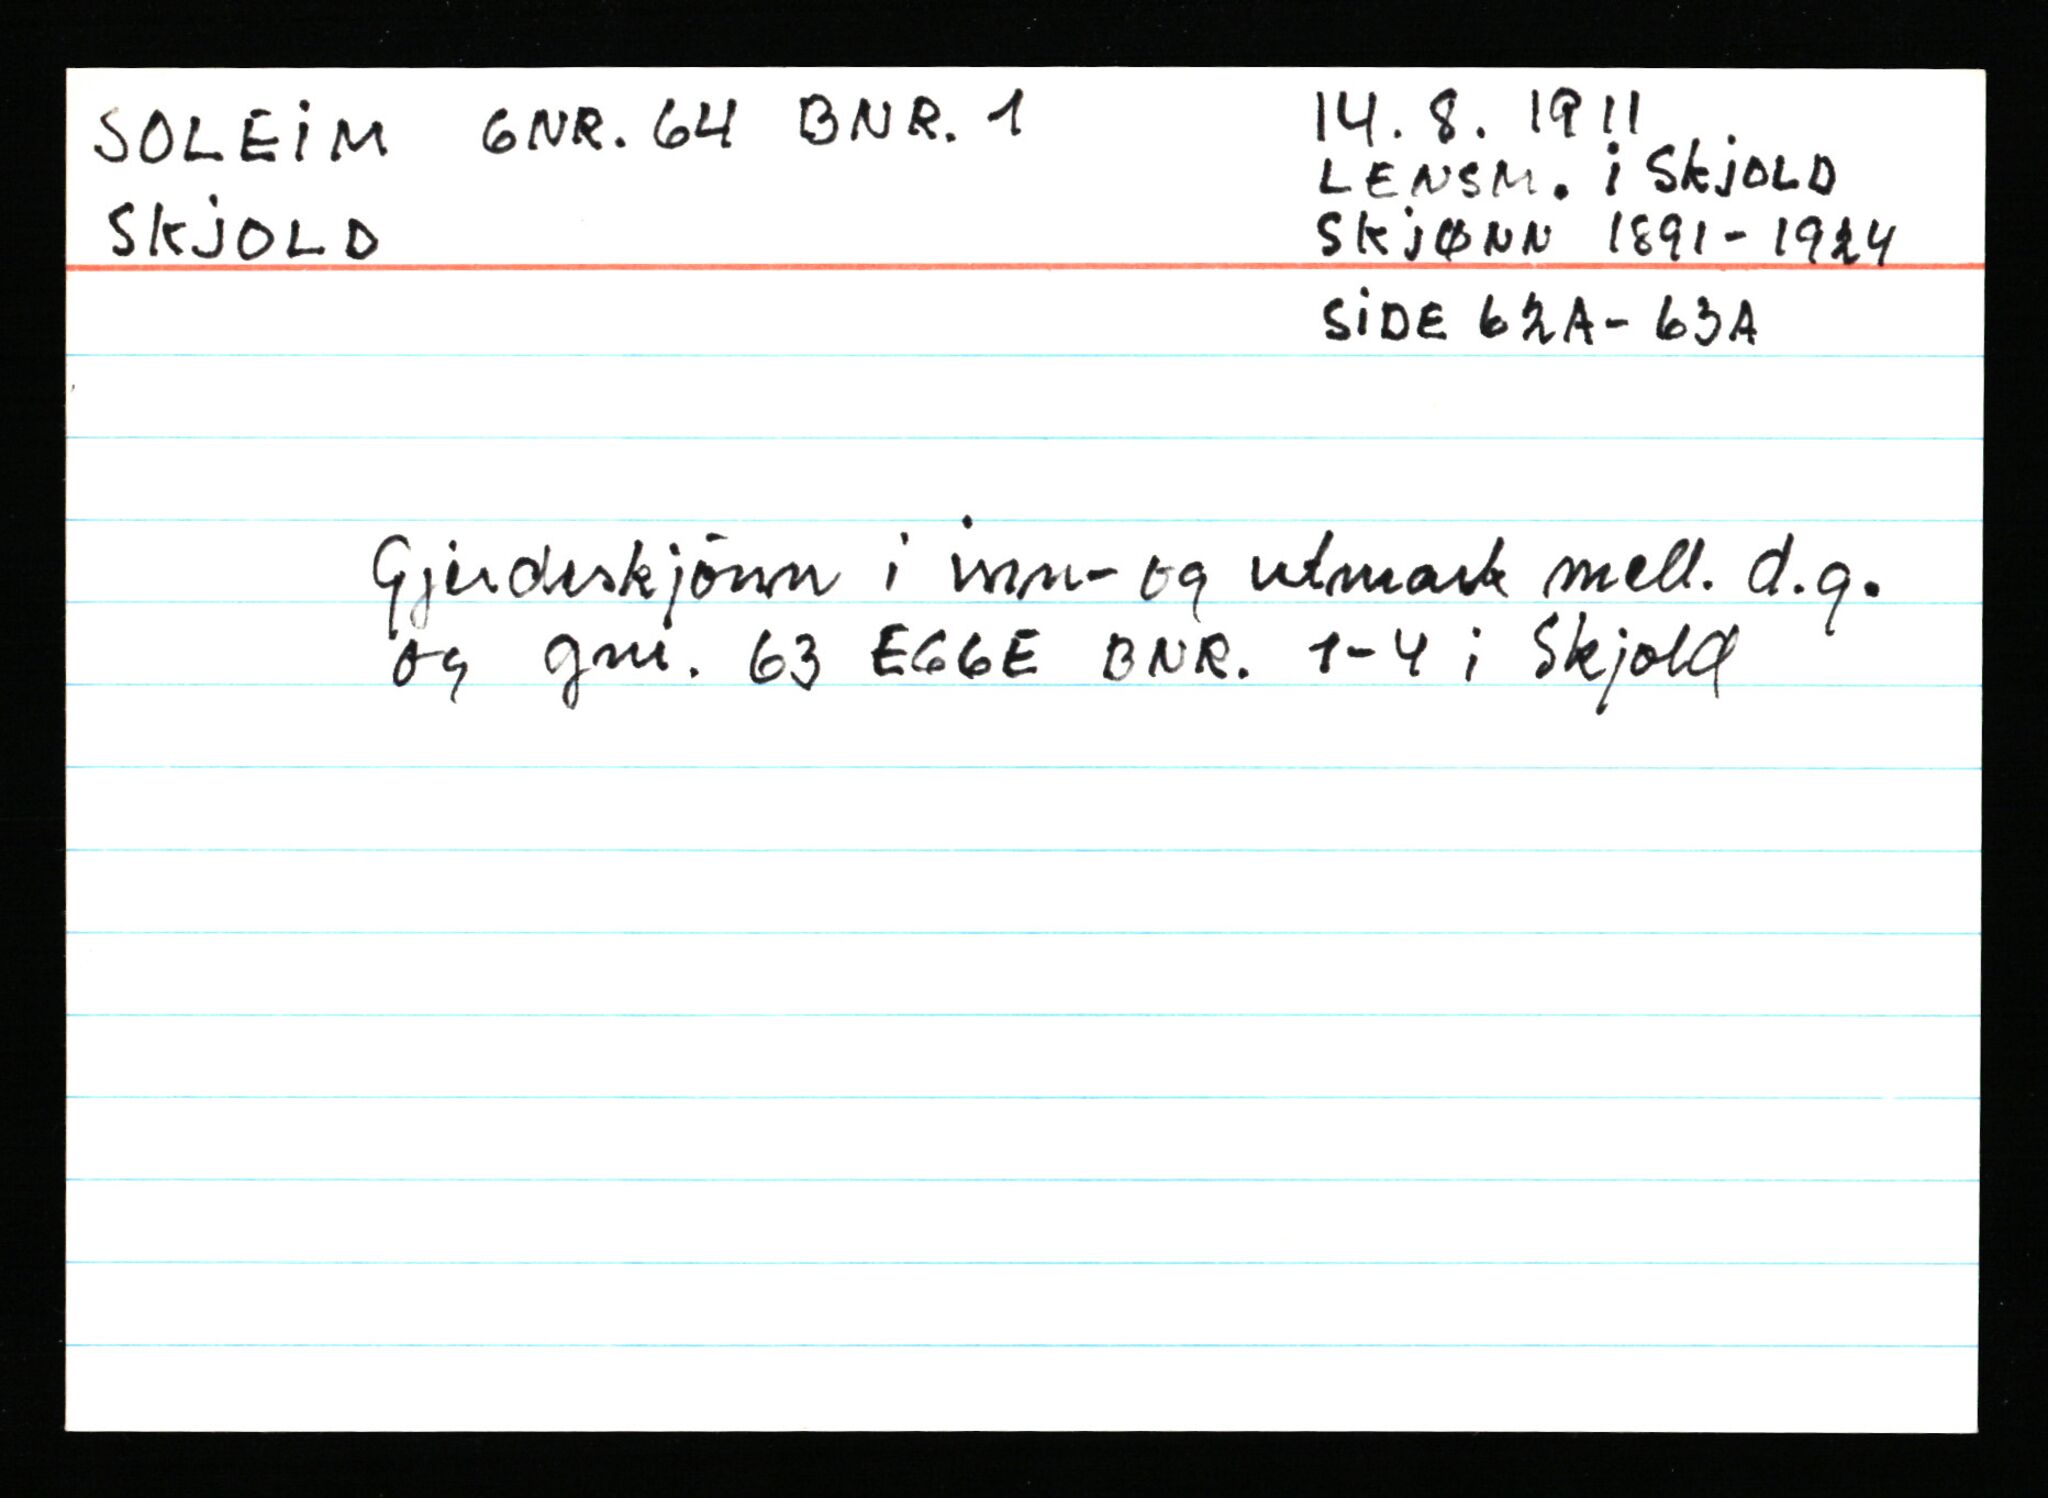 SOLEIM GNR. 64 BNR. 1
SKJOLD
14. 8. 1911
LENSM. i SKJOLD
SKJØNN 1891-1924
SIDE 62A-63A
Gjerdeskjønn i inn- og utmark mell. d.g.
og gnr. 63 EGGE BNR. 1-4 i Skjold